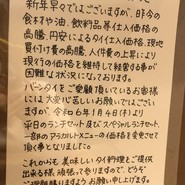 新年早々でございますが、昨今の
食材や油、飲料品等仕入価格の
高騰、円安によるタイ仕入価格、現地
買付け費の高騰、人件費の上昇により
現行の価格を維持して経営する事が
困難な状況になっております。
バーンタイをご愛顧頂いているお客様
には大変心苦しいお願いではござい
ますが、令和6年1月4日(木)より
平日のランチセット及び、スペシャルランチセット、
一部のアラカルトメニューの価格を変更させて
頂く事となりました。
これからも美味しいタイ料理をご提供
出来る様、頑張って参りますので、どうぞ
ご理解頂けますようお願い申し上げます。